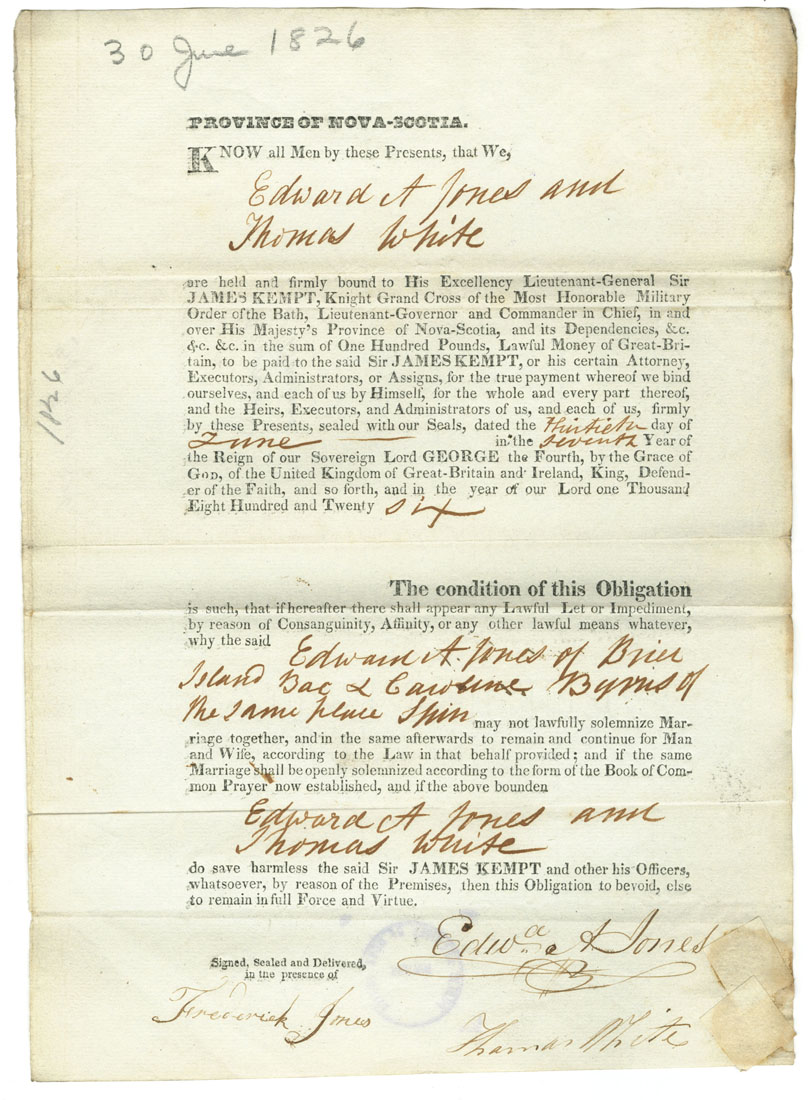 30 June 1826
PROVINCE OF NOVA-SCOTIA.
KNOW all Men by these Presents, that We,
Edward A Jones and
Thomas White
are held and firmly bound to His Excellency Lieutenant-General Sir
JAMES KEMPT, Knight Grand Cross of the Most Honorable Military
Order of the Bath, Lieutenant-Governor and Commander in Chief, in and
over His Majesty's Province of Nova-Scotia, and its Dependencies, &c.
&c. &c. in the sum of One Hundred Pounds, Lawful Money of Great-Bri-
tain, to be paid to the said Sir JAMES KEMPT, or his certain Attorney,
Executors, Administrators, or Assigns, for the true payment whereof we bind
ourselves, and each of us by Himself, for the whole and every part thereof,
and the Heirs, Executors, and Administrators of us, and each of us, firmly
by these Presents, sealed with our Seals, dated the Thirtieth day of
June in the seventh Year of
the Reign of our Sovereign Lord GEORGE the Fourth, by the Grace of
GOD, of the United Kingdom of Great-Britain and Ireland, King, Defend-
er of the Faith, and so forth, and in the year of our Lord one Thousand
Eight Hundred and Twenty six
1826
The condition of this Obligation
is such, that if hereafter there shall appear any Lawful Let or Impediment,
by reason of Consanguinity, Affinity, or any other lawful means whatever,
why the said Edward A. Jones of Brier
Island Bac & Caroline Byrns of
the same place Spin may not lawfully solemnize Mar-
riage together, and in the same afterwards to remain and continue for Man
and Wife, according to the Law in that behalf provided; and if the same
Marriage shall be openly solemnized according to the form of the Book of Com-
mon Prayer now established, and if the above bounden
Edward A Jones and
Thomas White
do save harmless the said Sir JAMES KEMPT and other his Officers,
whatsoever, by reason of the Premises, then this Obligation to bevoid, else
to remain in full Force and Virtue.
Edwd A Jones
Signed, Sealed and Delivered,
in the presence of
Frederick Jones
Thomas White